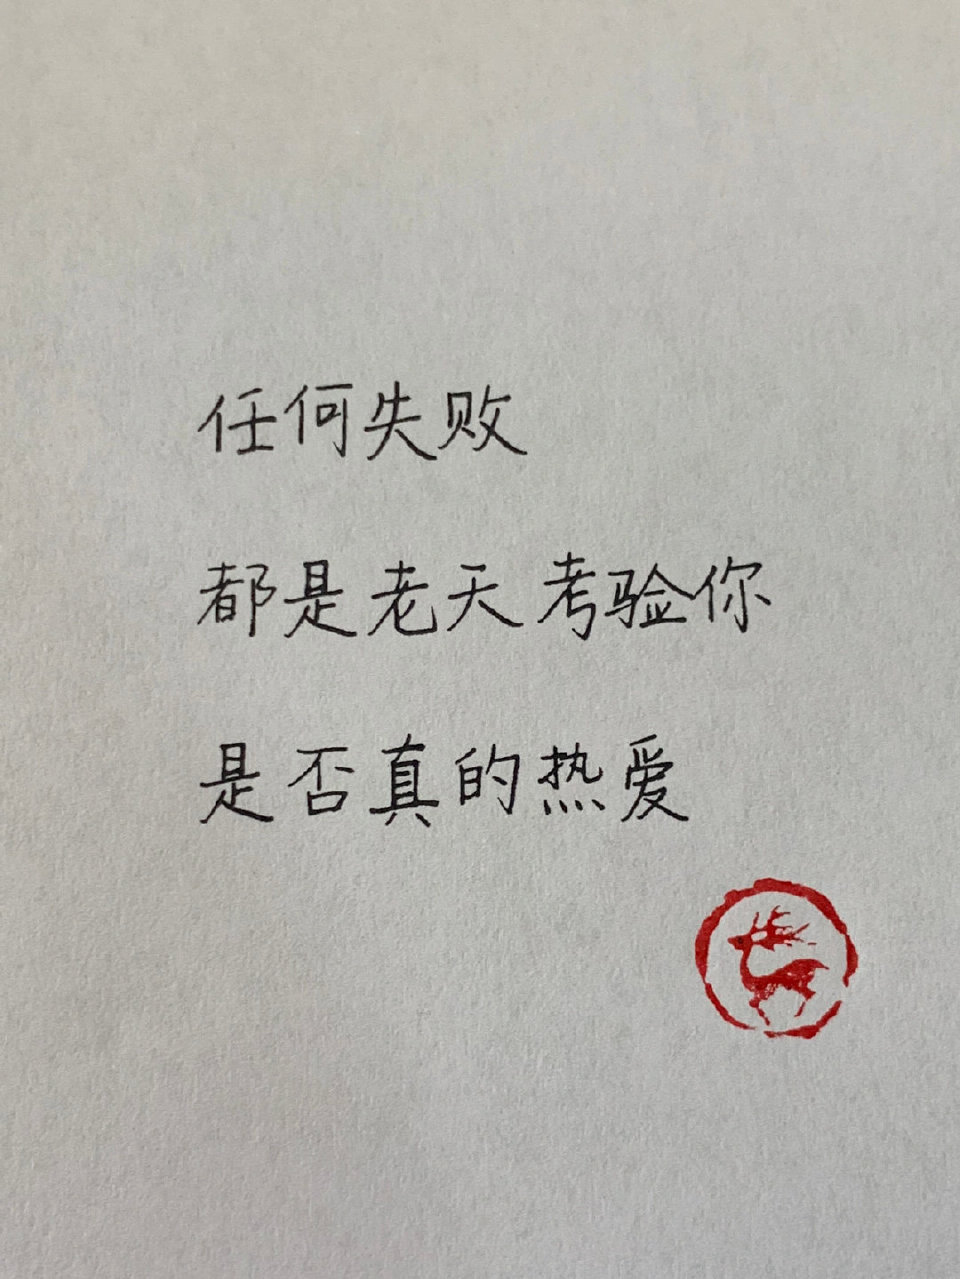 任何失败
都是老天考验你
是否真的热爱